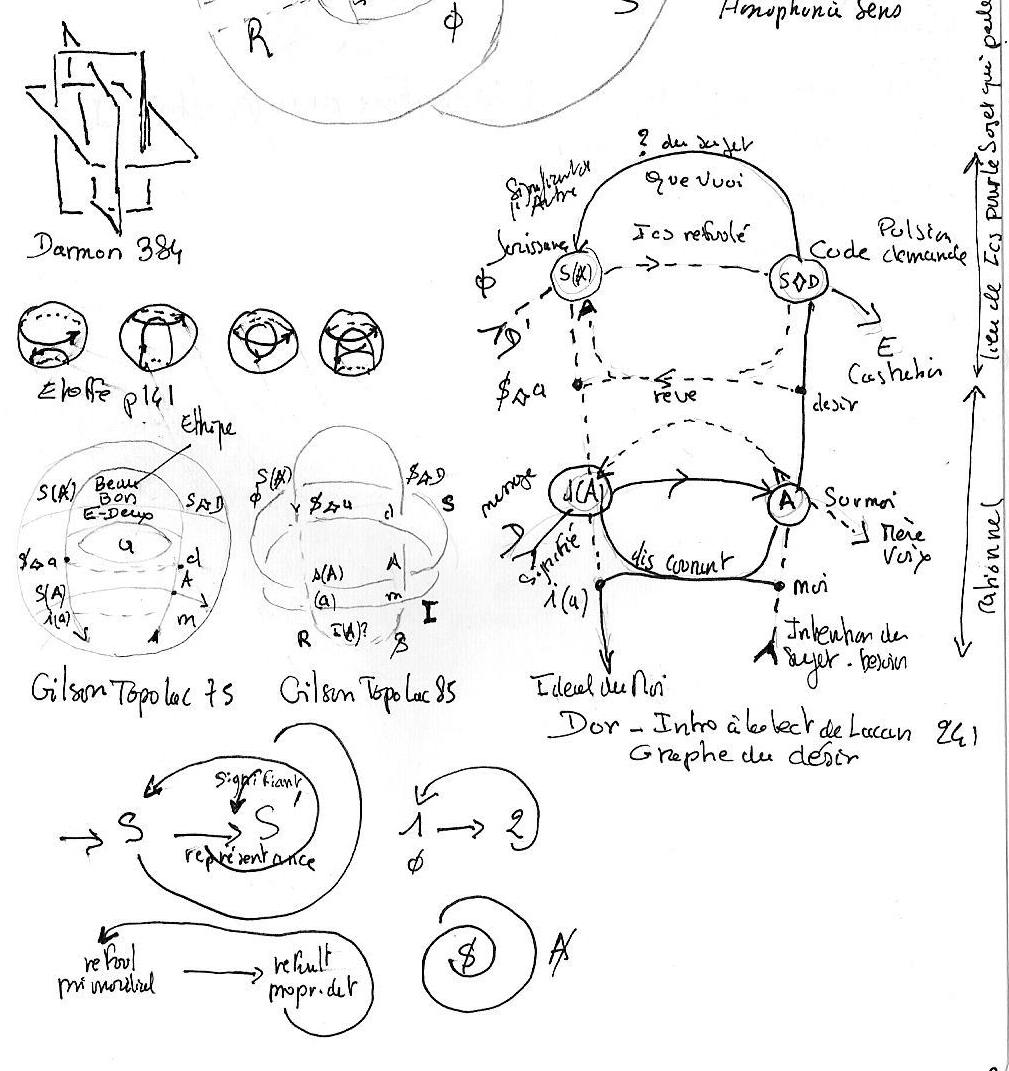 R
ϕ
S
Homophonie Sens
lieu de Ics pour le Sujet qui parle
Darmon 384
? du sujet
Que Vuoi
Signifiant de
l'Autre
Jouissance
Ics refoulé
Code
Pulsion
demande
ϕ
S(A̸)
S◊D
E
Castration
$◊a
rêve
desir
Etoffe p141
Ethique
S(A̸)
Beau
Bon
E-Deux
S◊D
a
$◊a
d
S(A)
A
i(a)
m
S(A̸)
$◊D
ϕ
$◊a
d
S
s(A)
A
(a)
m
I
R
I(A)?
$
message
s(A)
A
Surmoi
Mère
Voix
Signifié
discourant
i(a)
moi
Intention du
Sujet - besoin
rationnel
Ideal du Moi
Gilson TopoLac 75
Gilson TopoLac 85
Dor - Intro à la lect de Lacan 241
Graphe du désir
signifiant
S
S'
représentance
1
2
ϕ
refoul
primordial
refoult
propr.dit
$
A̸